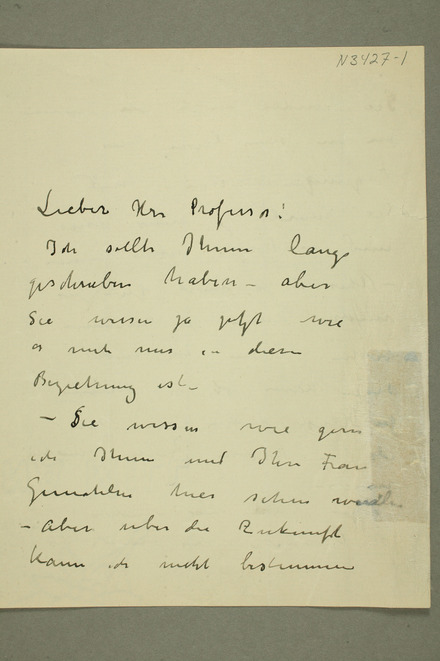 N3427-1
Lieber Herr Professor!
Ich sollte Ihnen lange
geschrieben haben – aber
Sie wissen ja jetzt wie
es mit mir in dieser
Beziehung ist –
– Sie wissen wie gern
ich Ihnen und Ihre Frau
Gemahlin hier sehen würde
– Aber über die Zukunft
kann ich nicht bestimmen